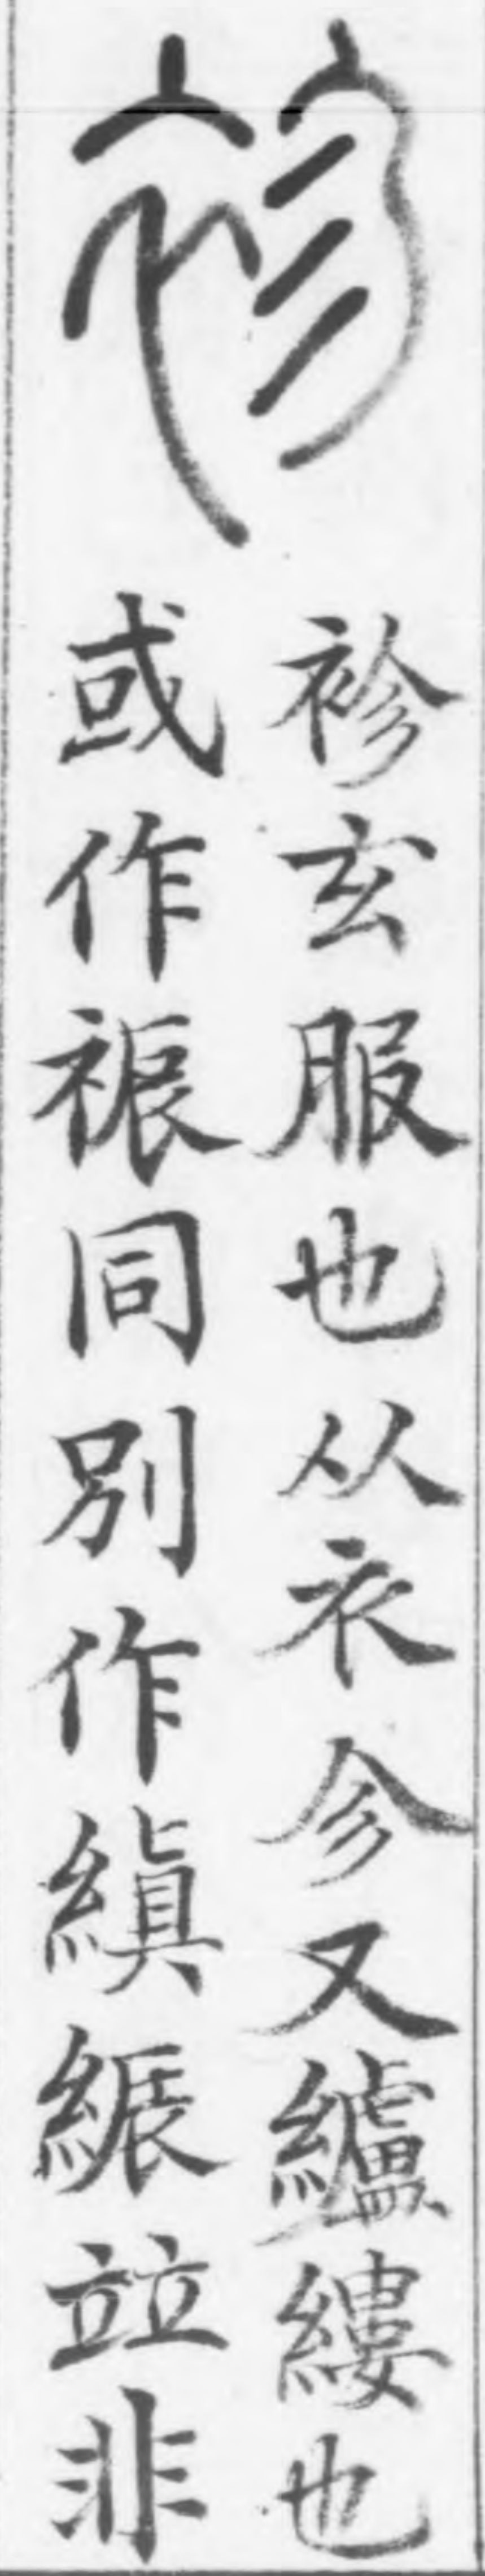 袗
袗玄服也从衣㐱又纑縷也
或作裖同別作縝䋾竝非